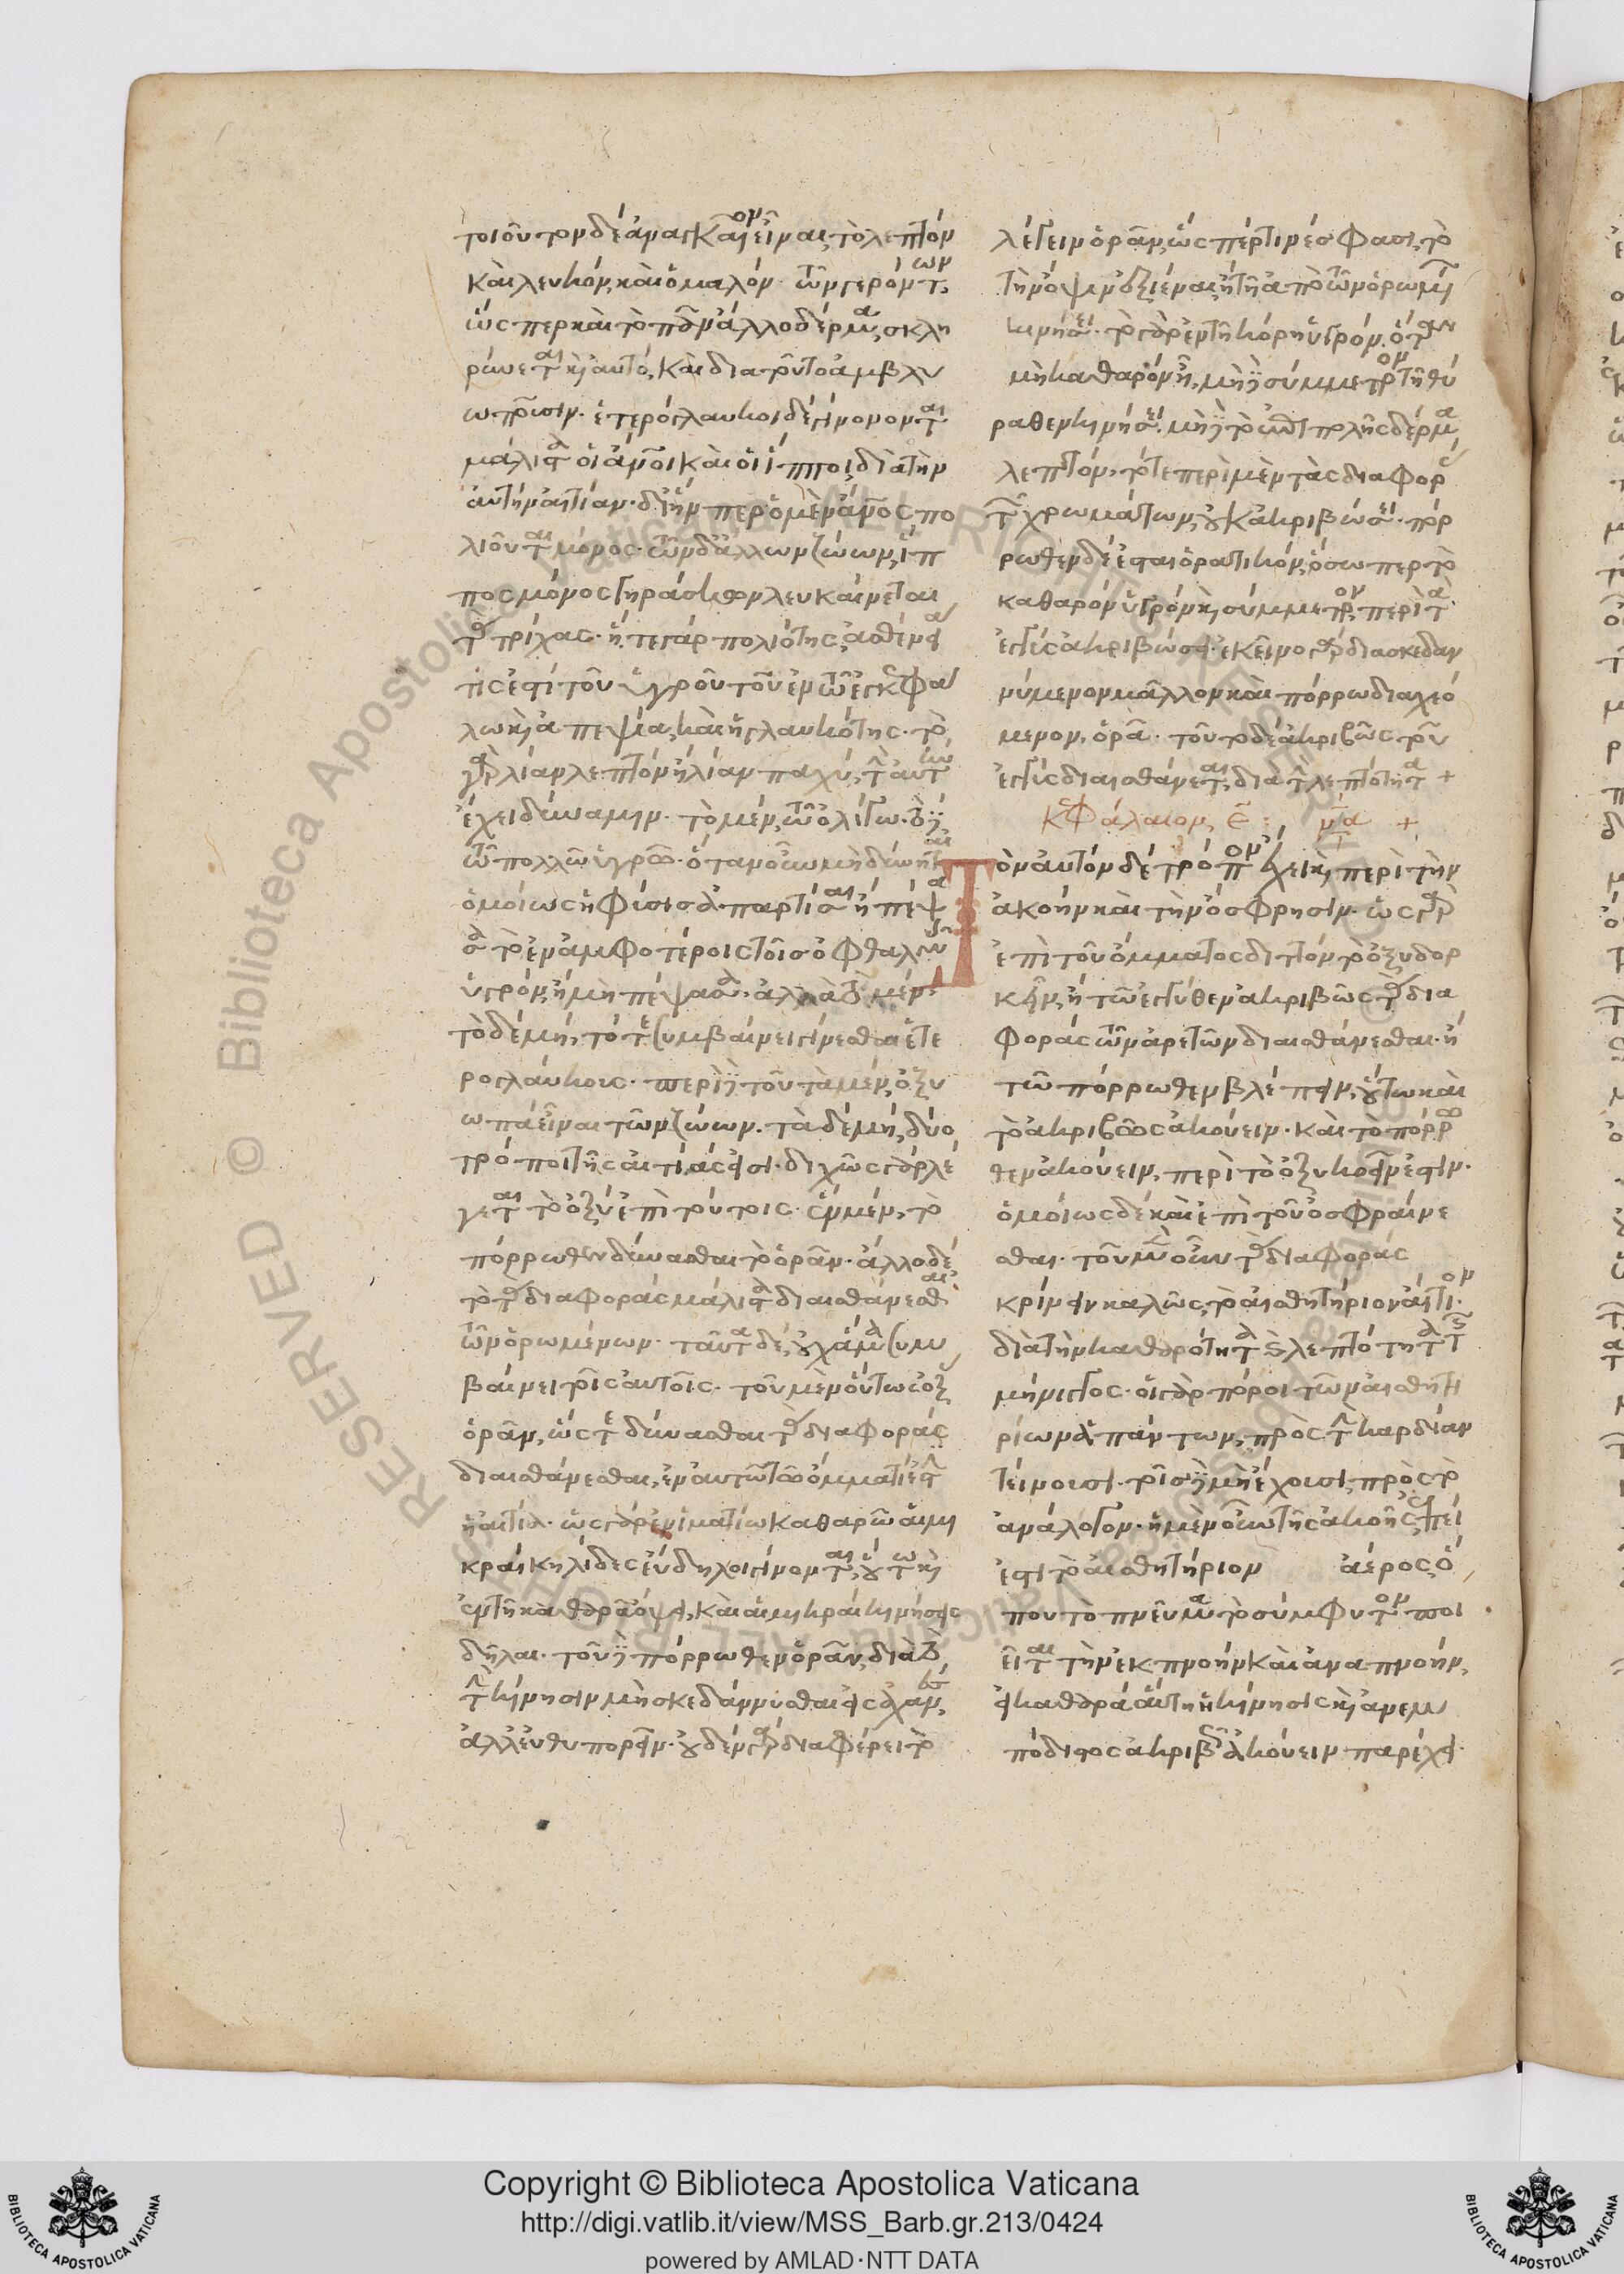 τοιοῦτον δὲ ἀναγκαῖον εἶναι, τὸ λεπτὸν
καὶ λευκὸν, καὶ ὁμαλόν. τῶν γερόντων,
ὥσπερ καὶ τὸ πᾶν ἄλλο δέρμα, σκλη
ρύνεται καὶ αὐτό, καὶ διὰ τοῦτο ἀμβλυ
ώττουσιν. ἑτερόγλαυκοι δὲ γίνονται
μάλιστα οἱ ἄνθρωποι καὶ οἱ ἵπποι διὰ τὴν
αὐτὴν αἰτίαν. δι' ἥνπερ ὁ μὲν ἄνθρωπος πο
λιοῦται μόνος. τῶν δ' ἄλλων ζώων, ἵπ
πος μόνος γηράσκων λευκαίνεται
τὰς τρίχας. ἥ τε γὰρ πολιότης, ἀσθένειά
τίς ἐστι τοῦ ὑγροῦ τοῦ ἐν τῷ ἐγκεφά
λω καὶ ἀπεψία, καὶ ἡ γλαυκότης. τὸ
γὰρ λίαν λεπτὸν ἢ λίαν παχύ, τὴν αὐτὴν
ἔχει δύναμιν. τὸ μὲν, τῷ ὀλίγω. τὸ δὲ
τῷ πολλῷ ὑγρῷ. ὅταν οὖν μὴ δύνηται
ὁμοίως ἡ φύσις ἀπαρτίσαι ἢ πέψα
σα τὸ ἐν ἀμφοτέροις τοῖς ὀφθαλμοῖς
ὑγρόν, ἢ μὴ πέψασα. ἀλλὰ τὸ μὲν,
τὸ δὲ μή, τότε συμβαίνει γίνεσθαι ἑτε
ρογλαύκοις. περὶ δὲ τοῦ τὰ μὲν, ὀξυ
ωπὰ εἶναι τῶν ζώων. τὰ δὲ μή, δύο
τρόποι τῆς αἰτίας εἰσί. διχῶς γὰρ λέ
γεται τὸ ὀξὺ ἐπὶ τούτοις. ἓν μὲν, τὸ
πόρρωθεν δύνασθαι τὸ ὁρᾶν. ἄλλο δὲ
τὸ τὰς διαφορὰς μάλιστα διαισθάνεσθαι
τῶν ὁρωμένων. ταῦτα δὲ, οὐχ ἅμα συμ
βαίνει τοῖς αὐτοῖς. τοῦ μὲν οὕτως ὀξὺ
ὁρᾶν, ὥς τε δύνασθαι τὰς διαφορὰς
διαισθάνεσθαι, ἐν αὐτῷ τῷ ὄμματί ἐστιν
ἡ αἰτία. ὡς γὰρ ἐν ἱματίω καθαρῷ αἱ μι
κραὶ κηλίδες εὔδηλοι γίνονται, οὕτω καὶ
ἐν τῇ καθαρᾷ ὄψει, καὶ αἱ μικραὶ κινήσεις
δῆλαι. τοῦ δὲ πόρρωθεν ὁρᾶν, διὰ τὸ
τὴν κίνησιν μὴ σκεδάννυσθαι εἰς ἀχανὲς,
ἀλλ' εὐθυπορεῖν. οὐδὲν γὰρ διαφέρει τὸ
λέγειν ὁρᾶν, ὥς πέρ τινές φασι, τῷ
τὴν ὄψιν ἐξιέναι, ἢ τῇ ἀπὸ τῶν ὁρωμένων
κινήσει. τὸ γὰρ ἐν τῇ κόρη ὑγρόν. ὅταν
μὴ καθαρὸν ἦ, μὴ δὲ σύμμετρον τῇ θύ
ραθεν κινήσει. μὴ δὲ τὸ ἐπιπολῆς δέρμα
λεπτόν, τότε περὶ μὲν τὰς διαφορὰς
τῶν χρωμάτων, οὐκ ἀκριβώσει. πόρ
ρωθεν δὲ ἔσται ὁρατικόν, ὅσω περ τὸ
καθαρὸν ὑγρὸν καὶ σύμμετρον, περὶ τὰ
ἐγγὺς ἀκριβώσει. ἐκεῖνο γὰρ διασκεδαν
νύμενον μᾶλλον καὶ πόρρω διαχεό
μενον, ὁρᾶ. τοῦτο δὲ ἀκριβῶς τοῦ
ἐγγὺς διαισθάνεται, διὰ τὴν λεπτότητα +
κεφάλαιον, ε : να +
Τὸν αὐτὸν δὲ τρόπον ἔχει καὶ περὶ τὴν
ἀκοὴν καὶ τὴν ὄσφρησιν. ὡς γὰρ
ἐπὶ τοῦ ὄμματος διττὸν τὸ ὀξυδορ
κεῖν, ἢ τῷ ἐγγύθεν ἀκριβῶς τὰς δια
φορὰς τῶν ὁρατῶν διαισθάνεσθαι. ἢ
τῷ πόρρωθεν βλέπειν, οὕτω καὶ
τὸ ἀκριβῶς ἀκούειν. καὶ τὸ πόρρω
θεν ἀκούειν, περὶ τὸ ὀξυηκοεῖν ἐστιν.
ὁμοίως δὲ καὶ ἐπὶ τοῦ ὀσφραίνε
σθαι. τοῦ μὲν οὖν τὰς διαφορὰς
κρίνειν καλῶς, τὸ αἰσθητήριον αἴτιον.
διὰ τὴν καθαρότητα καὶ λεπτότητα τῆς
μήνιγγος. οἱ γὰρ πόροι τῶν αἰσθητη
ρίων ἁπάντων, πρὸς τὴν καρδίαν
τείνουσι. τοῖς δὲ μὴ ἔχουσι, πρὸς τὸ
ἀνάλογον. ἡ μὲν οὖν τῆς ἀκοῆς, ἐπεί
ἐστι τὸ αἰσθητήριον ἀέρος, ὅ
που τὸ πνεῦμα τὸ σύμφυτον ποι
εῖται τὴν ἐκπνοὴν καὶ ἀναπνοήν,
εἰ καθαρὰ αὕτη ἡ κίνησις καὶ ἀνεμ
πόδιστος ἀκριβῶς ἀκούειν παρέχει.
Copyright © Biblioteca Apostolica Vaticana
http://digi.vatlib.it/view/MSS_Barb.gr.213/0424
powered by AMLAD·NTT DATA
BIBLIOTECA APOSTOLICA VATICANA
BIBLIOTECA APOSTOLICA VATICANA